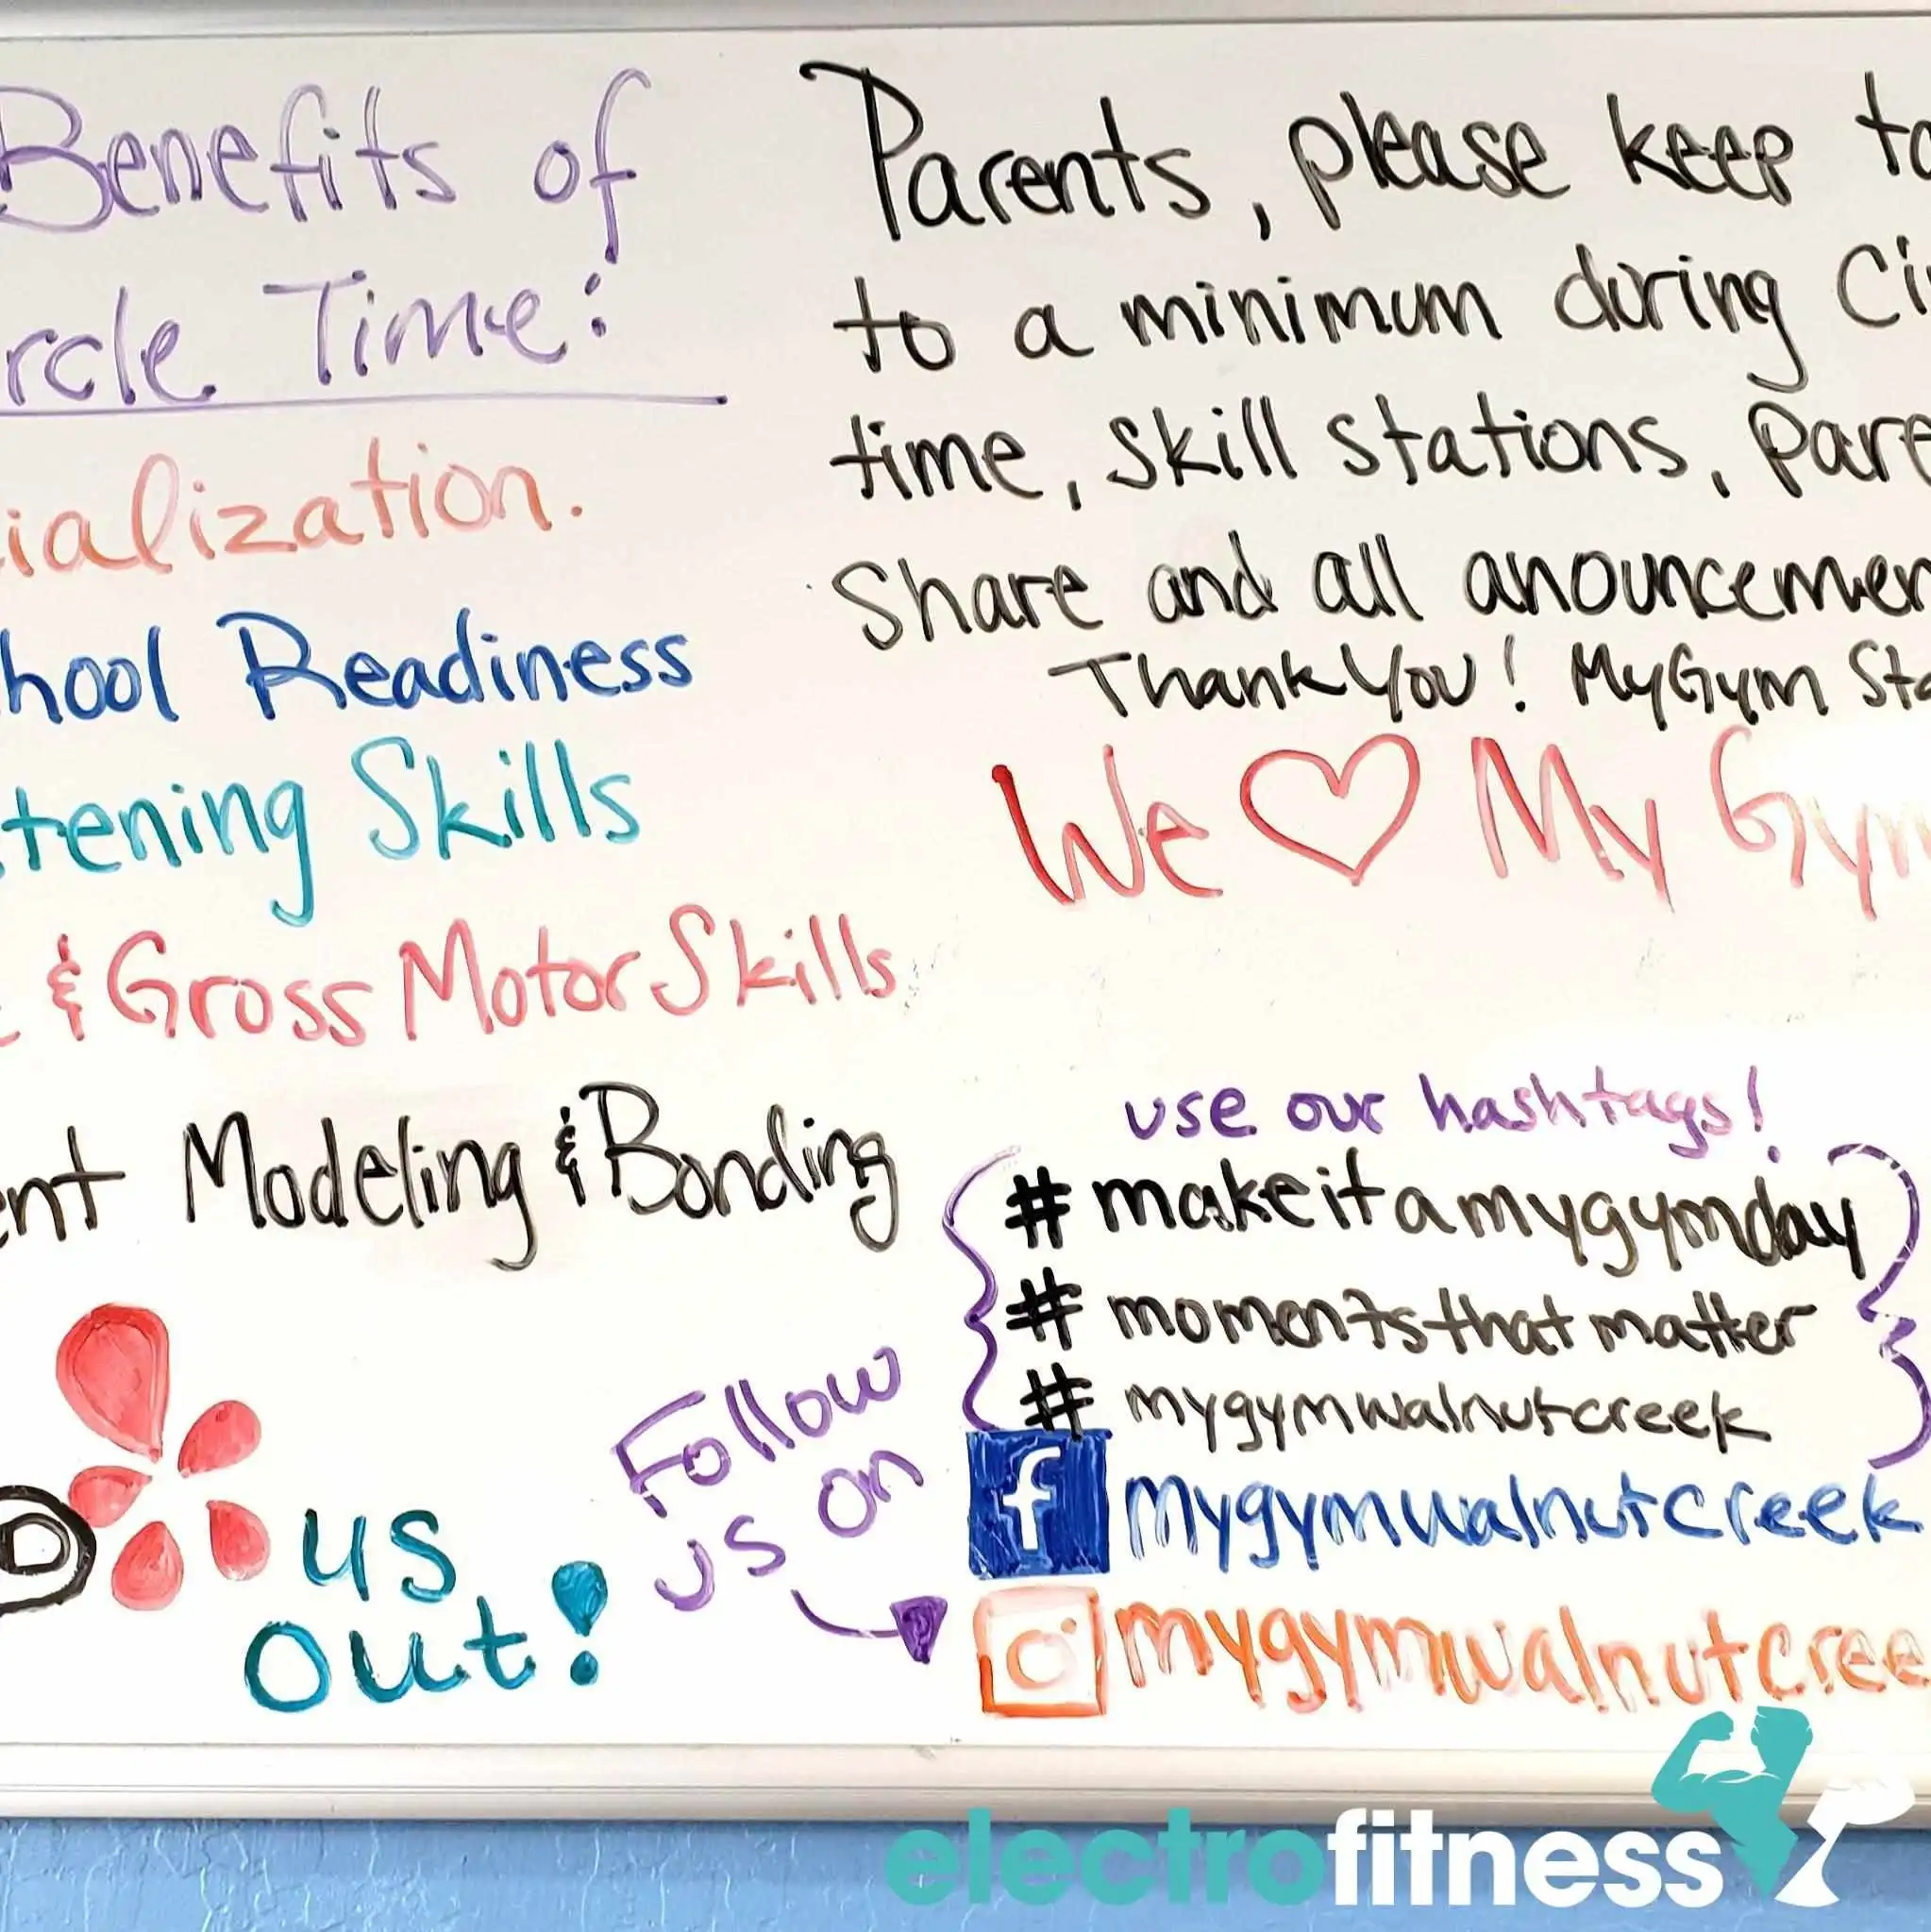 Benefits of
rcle Time:
ialization.
hool Readiness
tening Skills
& Gross Motor Skills
ent Modeling & Bonding
us
out!
Parents, please keep to
to a minimum during Ci
time, skill stations, Pare
Share and all anouncemen
Thank You! MyGym Sta
We ♡ My Gym
use our hashtags!
# makeitamygymday
# momentsthatmatter
# mygymwalnutcreek
Follow
us on
f mygymwalnutcreek
mygymwalnutcree
electrofitness